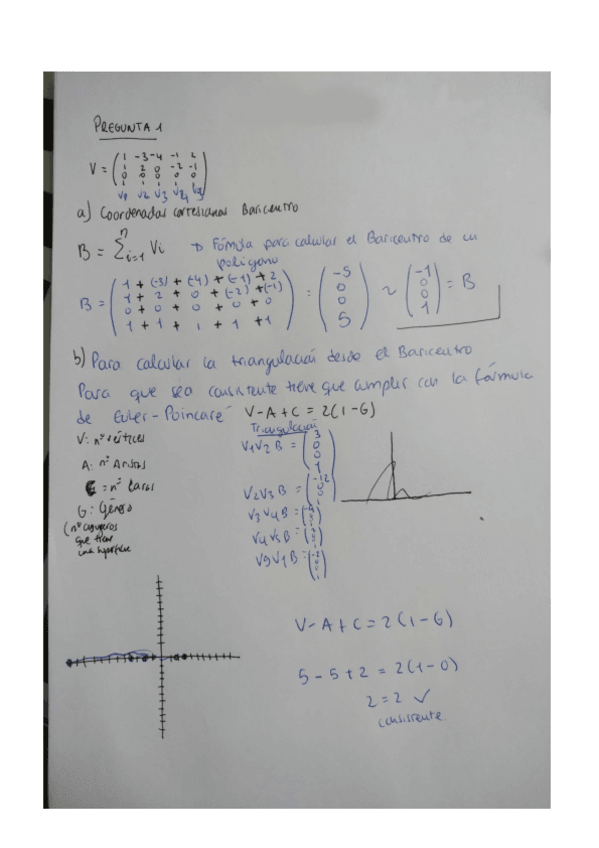 PREGUNTA 1
V = ( 1 -3 -4 -1 2
1 2 0 -2 -1
0 0 0 0 0
1 1 1 1 1 )
V1 V2 V3 V4 V5
a) Coordenadas cartesianas Baricentro
B = Σ i=1 n Vi → Fórmula para calcular el Baricentro de un
polígono
B = ( 1 + (-3) + (-4) + (-1) + 2
1 + 2 + 0 + (-2) + (-1)
0 + 0 + 0 + 0 + 0
1 + 1 + 1 + 1 + 1 ) = ( -5 0 0 5 ) ~ ( -1 0 0 1 ) = B
b) Para calcular la triangulación desde el Baricentro
Para que sea consistente tiene que cumplir con la fórmula
de Euler-Poincaré V-A+C = 2(1-G)
V: nº vértices
A: nº Aristas
C = nº Caras
G: Género
(nº agujeros
que tiene
una superficie
Triangulación
V1V2B = ( 3 0 0 1 )
V2V3B =
V3V4B =
V4V5B =
V5V1B =
V-A+C = 2(1-G)
5-5+2 = 2(1-0)
2=2 ✓
consistente.